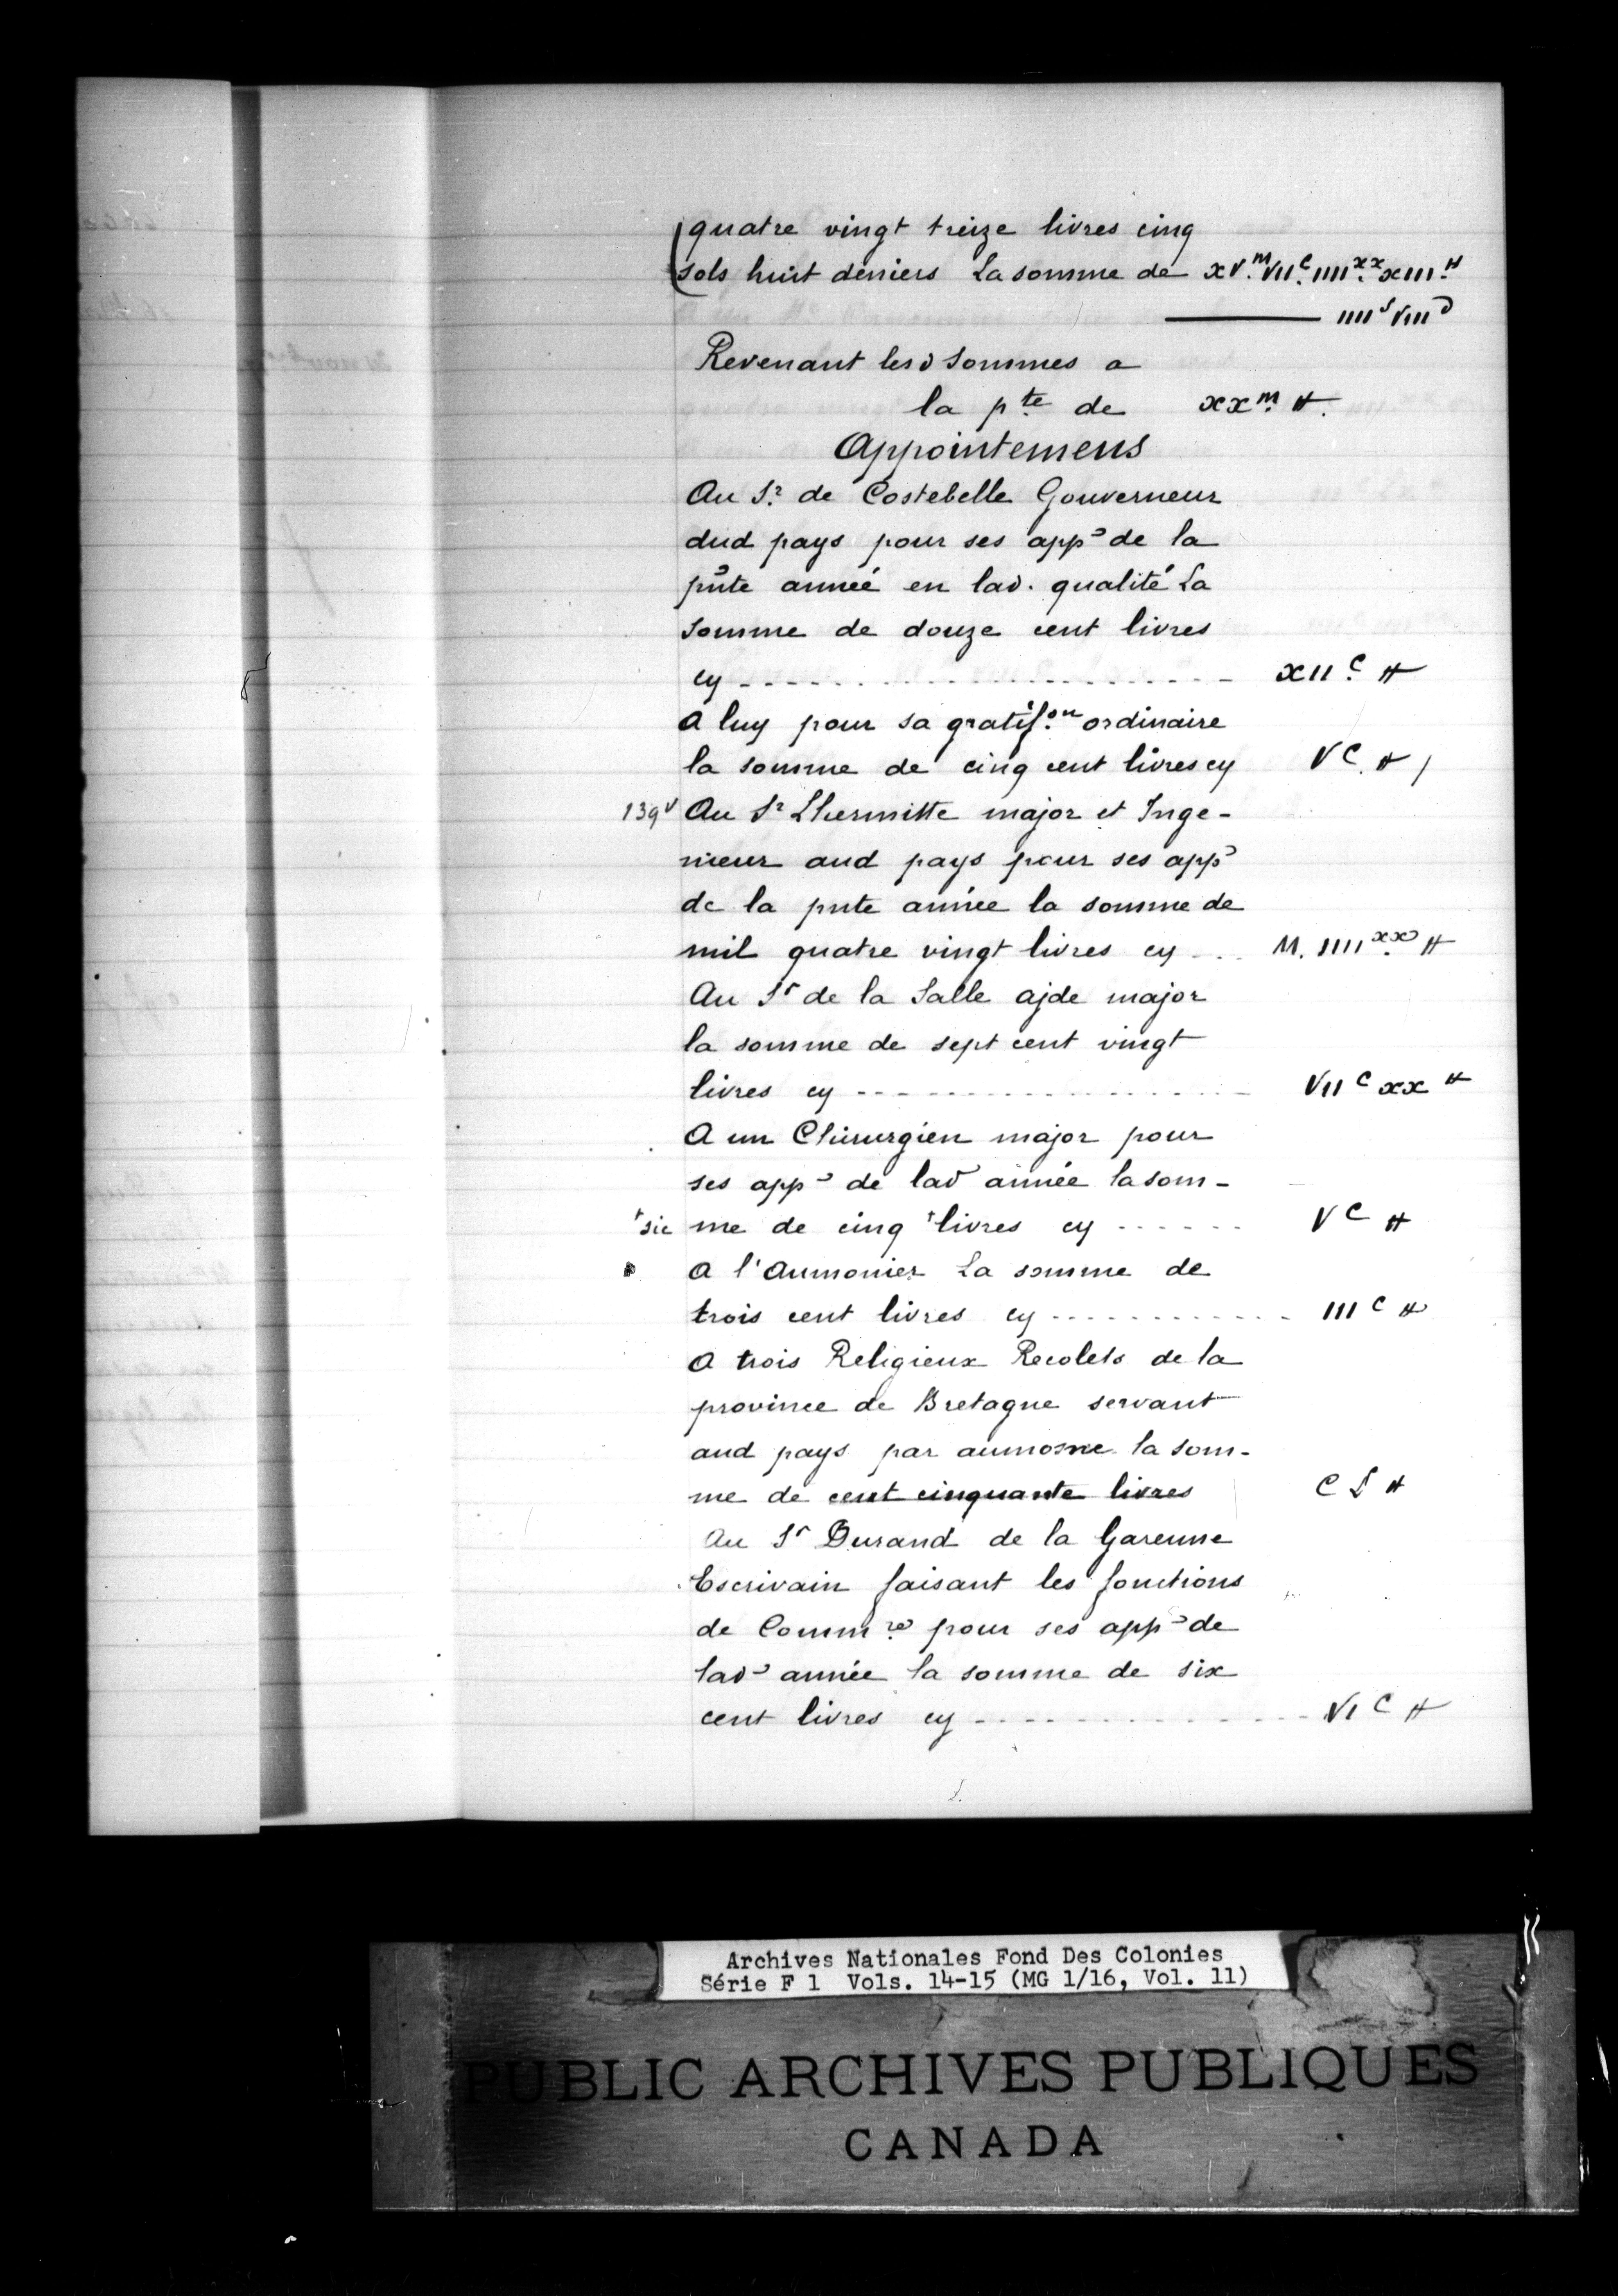 quatre vingt treize livres cinq
sols huit deniers La somme de xv.ᵐ VII.ᶜ IIII.ˣˣ XIII.ᵗᵗ
IIIIˢ VIIIᵈ
Revenant lesd sommes a
la pᵗᵉ de xxᵐ. tt.
Appointemens
Au Sʳ. de Costebelle Gouverneur
dud pays pour ses appˢ de la
pñte année en lad. qualité La
somme de douze cent livres
cy - - - - - - - - - - XIIᶜ. tt
A luy pour sa gratif.ᵒⁿ ordinaire
la somme de cinq cent livres cy Vᶜ. tt
139ᵛ Au Sʳ Lhermitte major et Inge-
nieur aud pays pour ses appˢ
de la pnte année la somme de
mil quatre vingt livres cy ... M. IIIIˣˣ. tt
Au Sʳ de la Salle ajde major
la somme de sept cent vingt
livres cy - - - - - - - - - - VIIᶜ xx tt
A un Chirurgien major pour
ses appˢ de lad année la som-
⁺sic me de cinq ⁺livres cy - - - - - - Vᶜ tt
A l'Aumonier La somme de
trois cent livres cy - - - - - - - - - - IIIᶜ tt
A trois Religieux Recolets de la
province de Bretagne servant
aud pays par aumosne la som-
me de cent cinquante livres C L tt
Au Sʳ Durand de la Garenne
Escrivain faisant les fonctions
de Commʳᵉ. pour ses appˢ de
lad année la somme de six
cent livres cy - - - - - - - - - - VIᶜ tt
Archives Nationales Fond Des Colonies
Série F 1 Vols. 14-15 (MG 1/16, Vol. 11)
PUBLIC ARCHIVES PUBLIQUES
CANADA